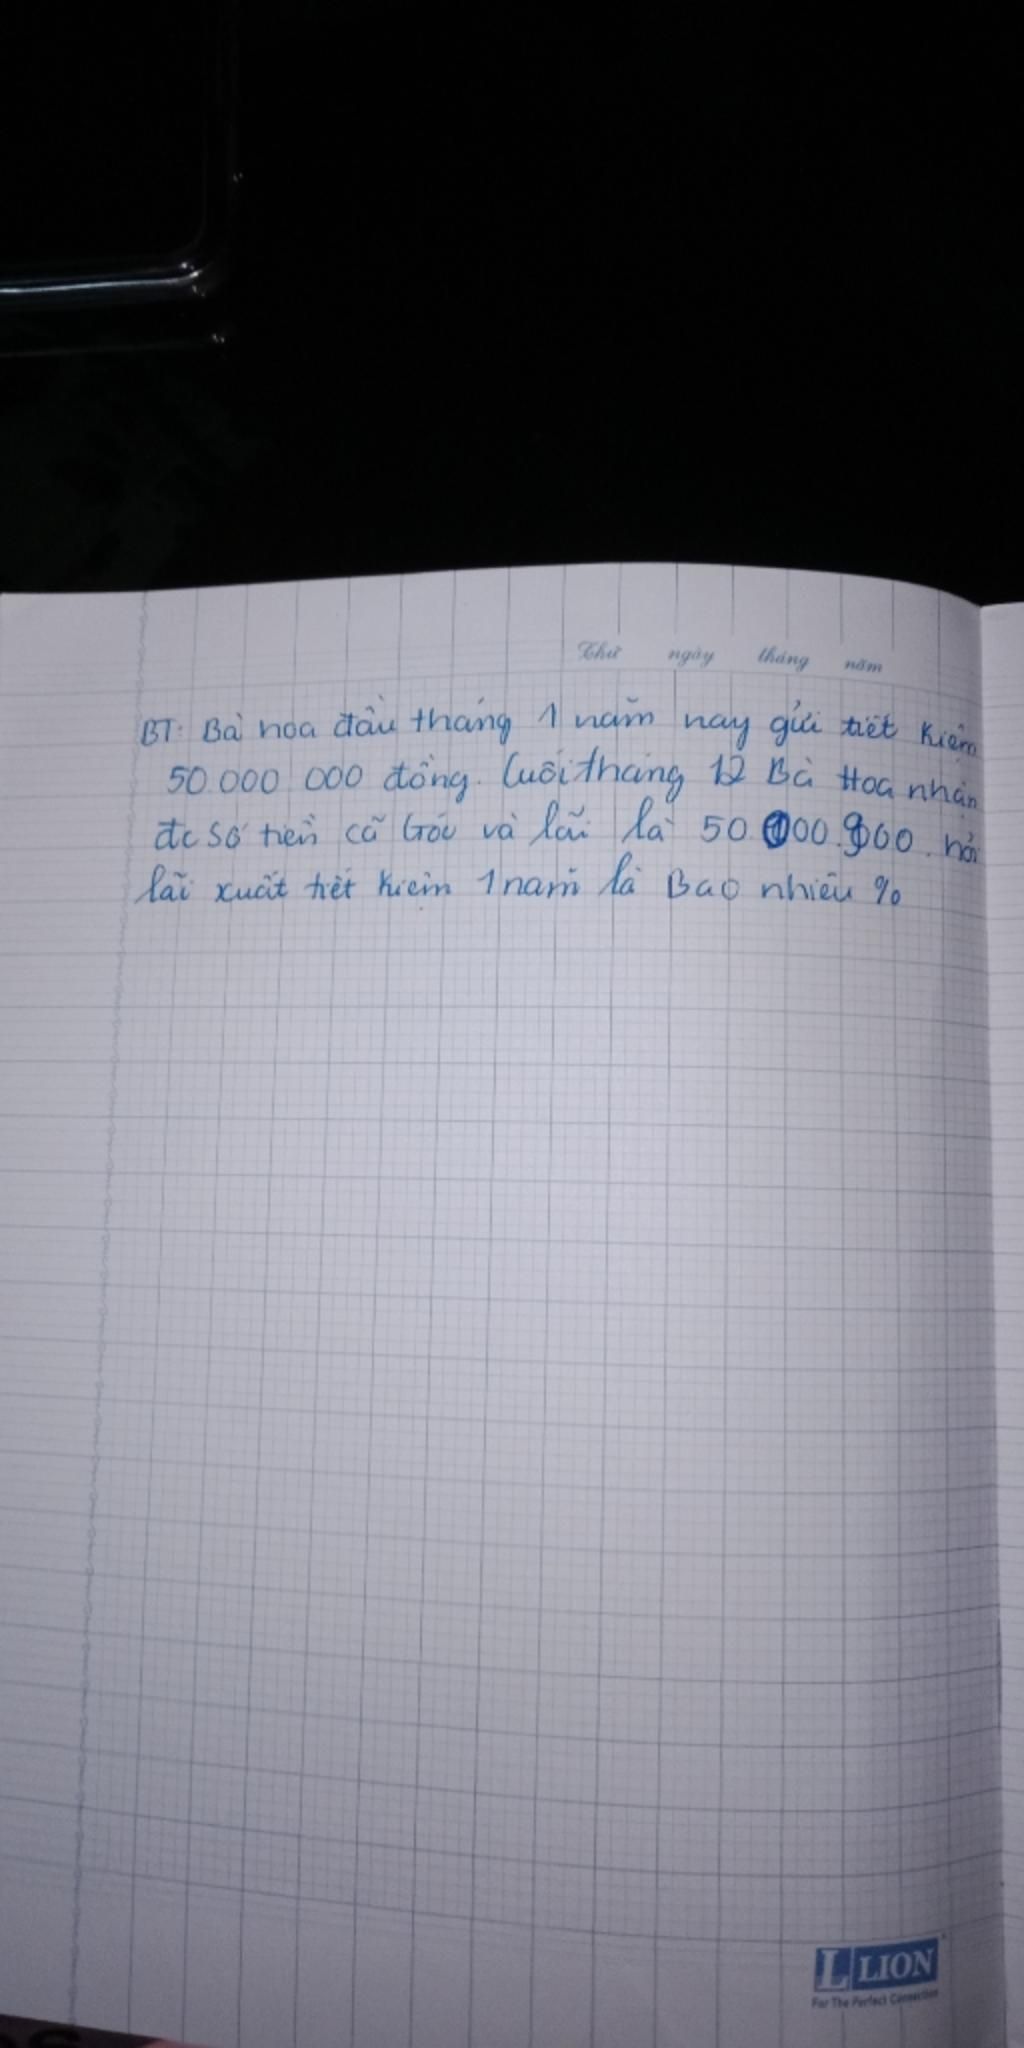 Thứ ngày tháng năm
BT: Bà hoa đầu tháng 1 năm nay gửi tiết kiệm
50.000 000 đồng. Cuối tháng 12 Bà Hoa nhận
đc số tiền cã Gốc và lãi là 50. 000.900. hỏi
lãi xuất tiết kiệm 1 năm là Bao nhiêu %
L LION
For The Perfect Connection